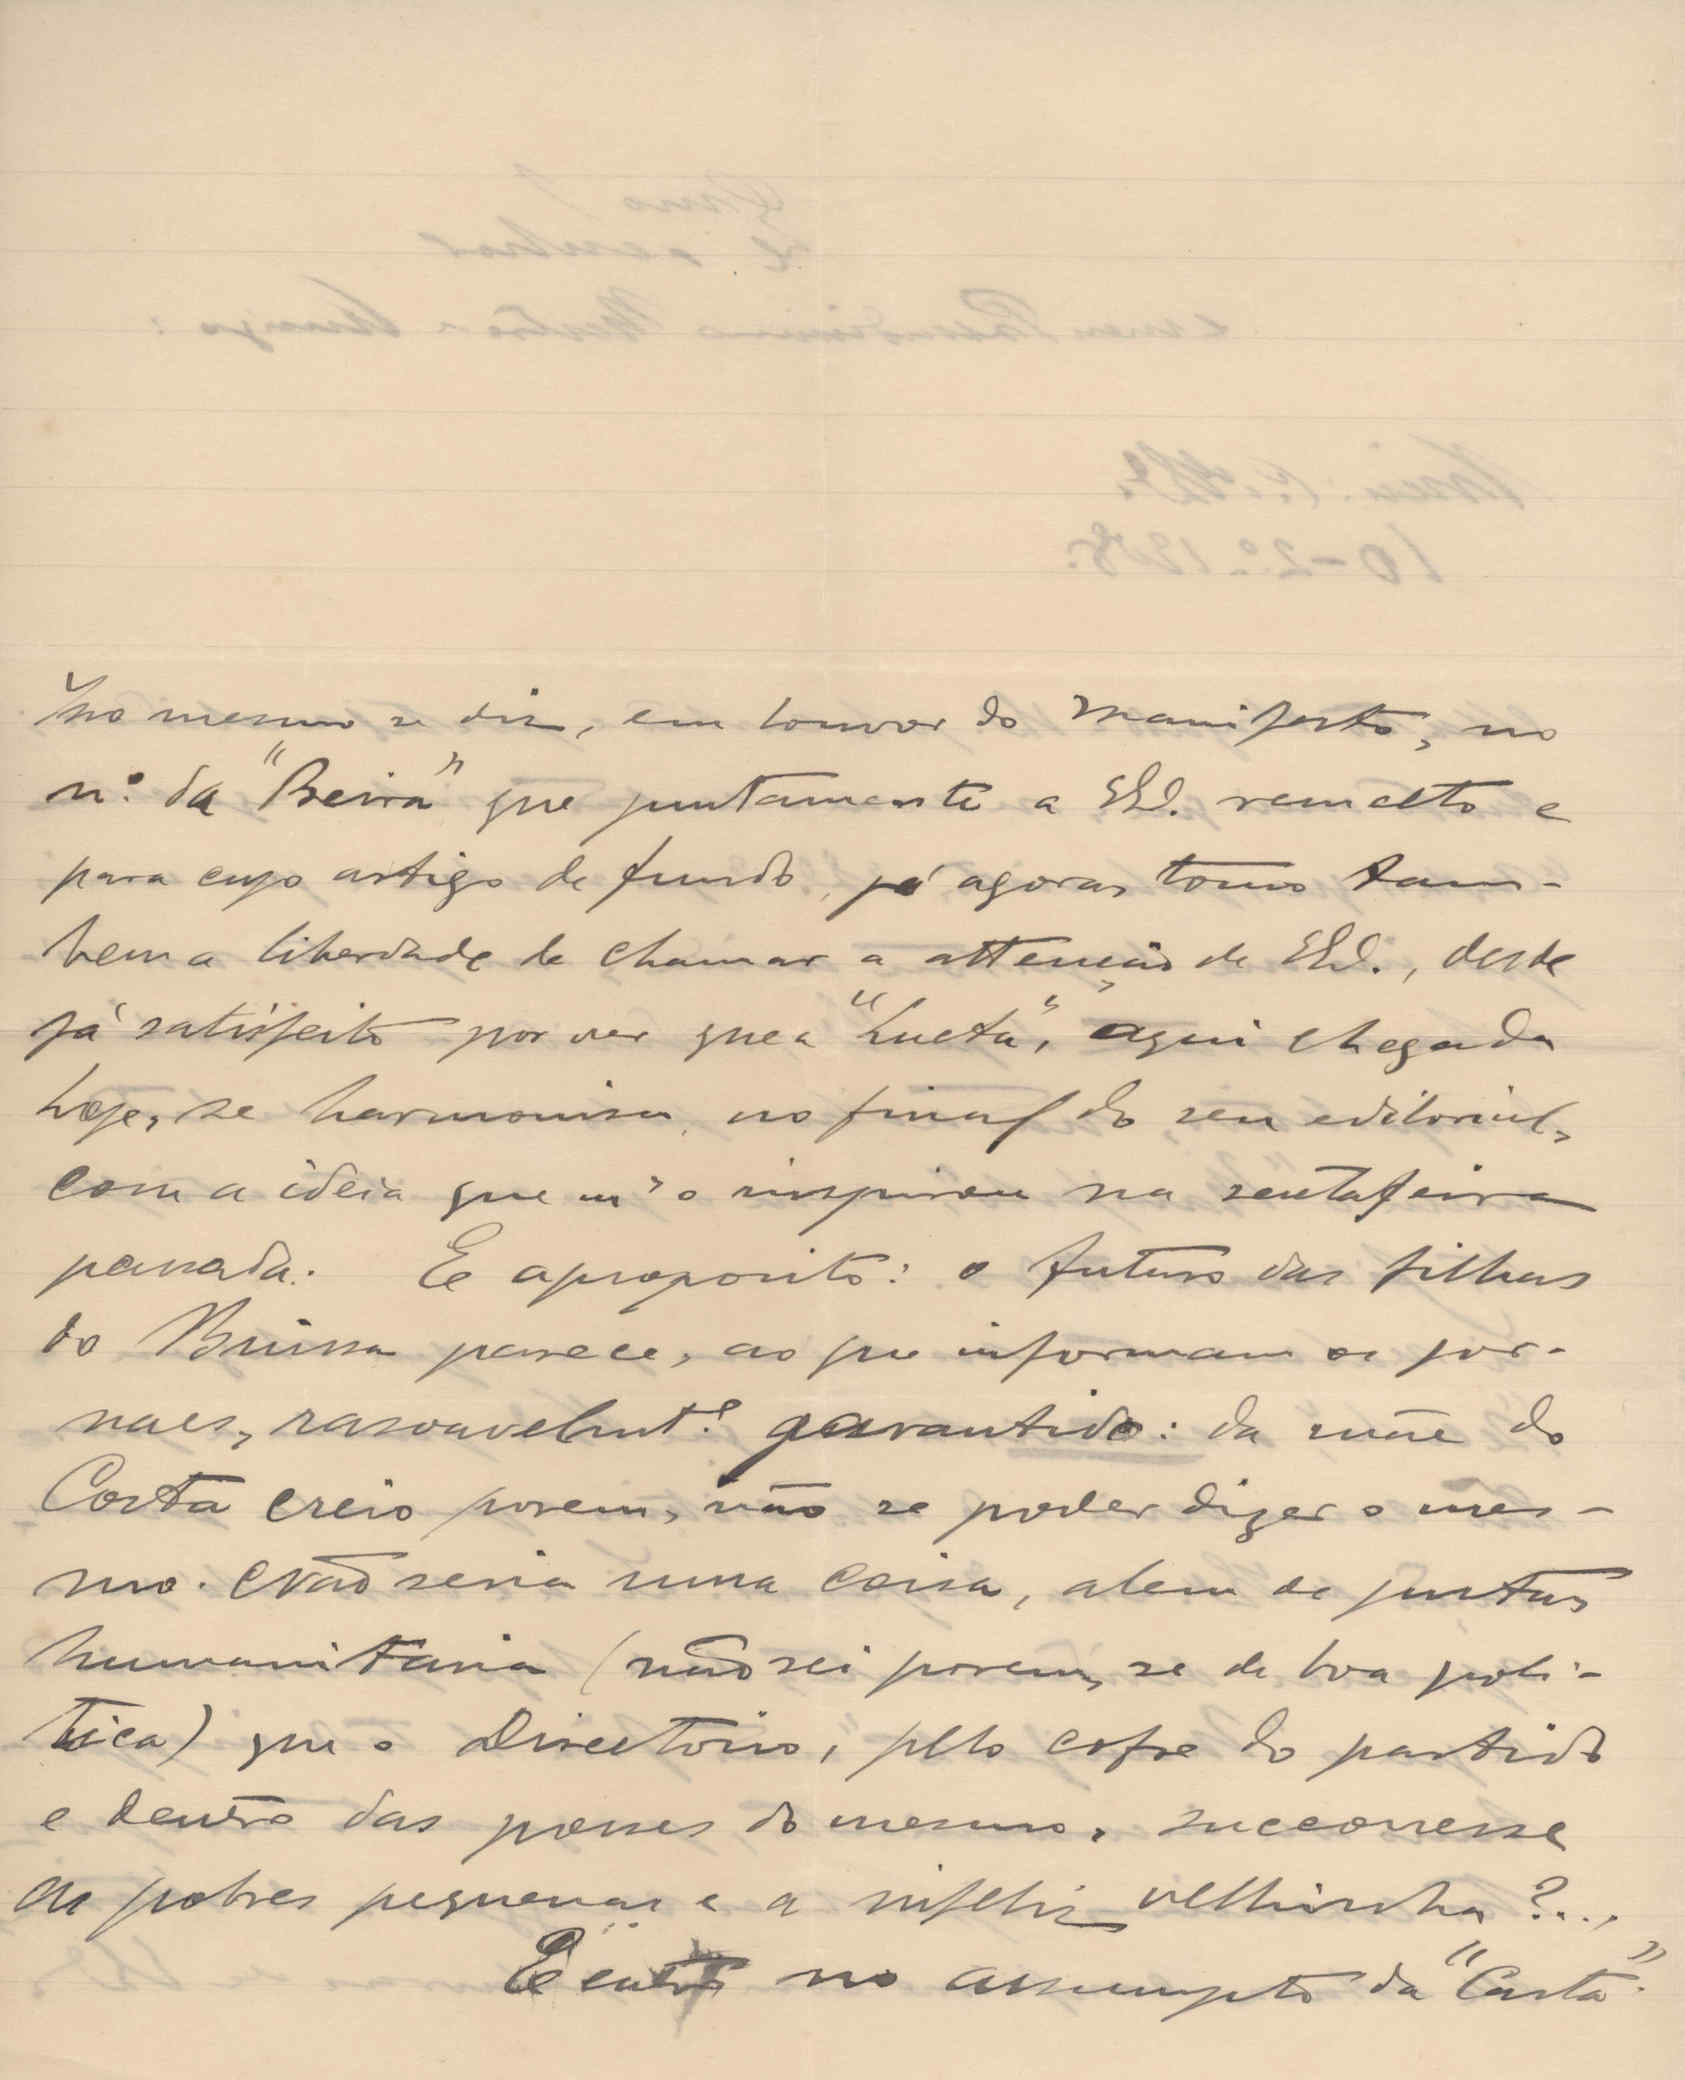 Isso mesmo se diz, em louvor do manifesto, no
n.º da "Beira" que juntamente a remetto e
para cujo artigo de fundo, já agora, tomo tam-
bem a liberdade de chamar a attenção de , desde
já satisfeito por ver que a "Lucta", aqui chegada
hoje, se harmonisa, no final do seu editorial,
com a ideia que m'o inspirou na sextafeira
passada. E aproposito: o futuro das filhas
do Buissa parece, ao que informam os jor-
naes, rasoavelmt.e garantido: da mãe do
Costa creio porem, não se poder dizer o mes-
mo. Não seria uma coisa, alem de justa,
humanitaria (não sei porem, se de boa poli-
tica) que o Directorio, pelo cofre do partido
e dentro das posses do mesmo, soccorresse
as pobres pequenas e a infeliz velhinha?...
E entro no assumpto da "Carta".